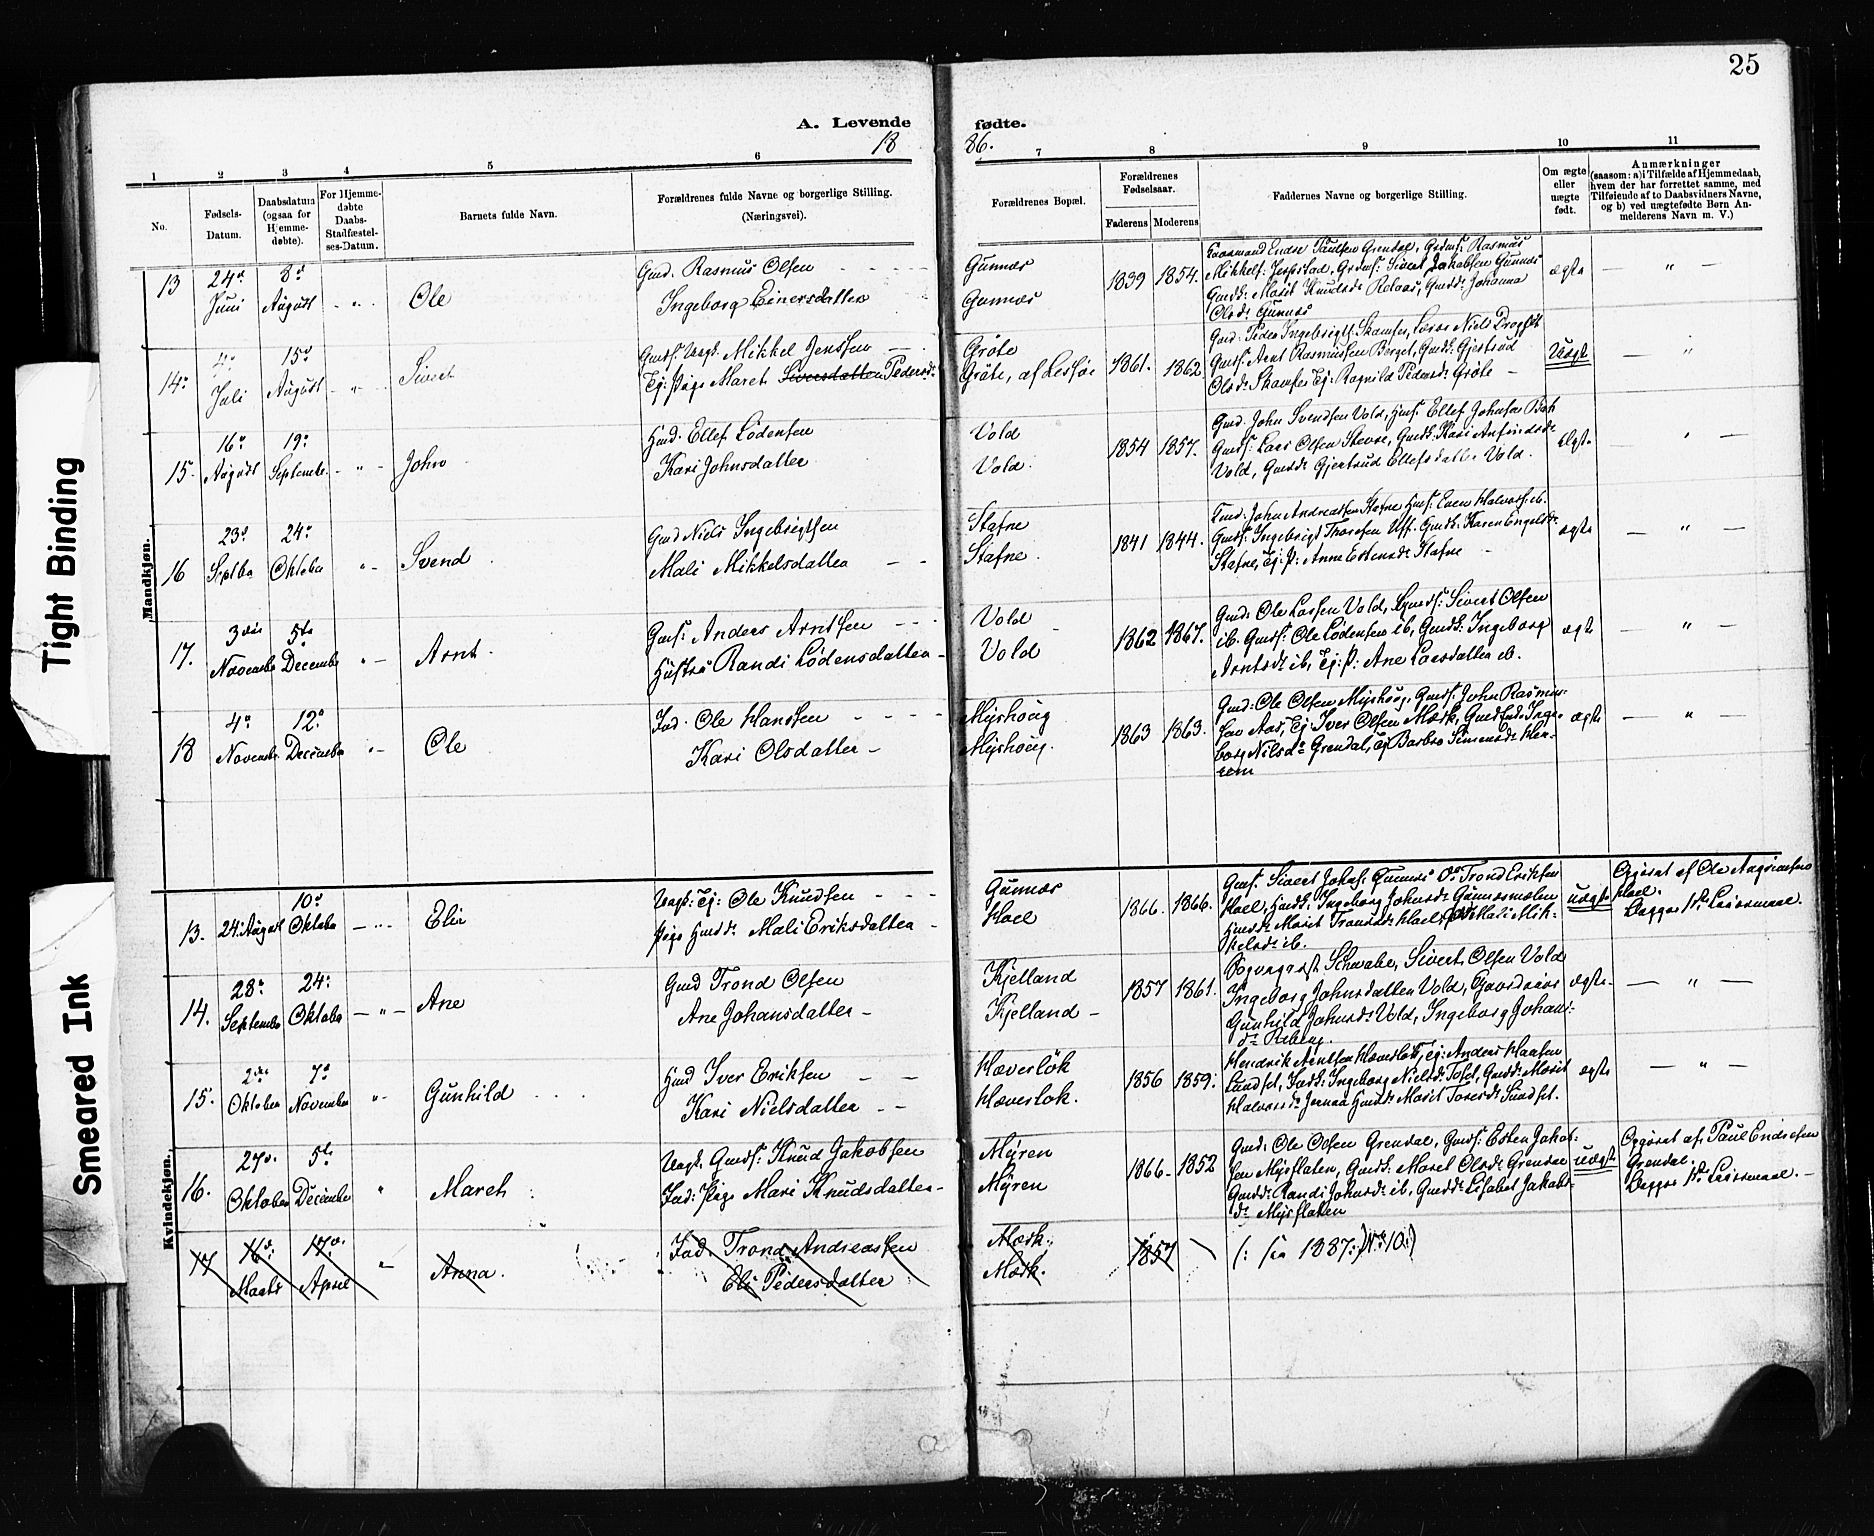 25
A. Levende fødte.
1886.
1 2 3 4 5 6 7 8 9 10 11
No.
Fødsels-
Datum.
Daabsdatum
(ogsaa for
Hjemme-
døbte).
For Hjemme-
døbte
Daabs-
Stadfæstel-
ses-Datum.
Barnets fulde Navn.
Forældrenes fulde Navne og borgerlige Stilling.
(Næringsvei).
Forældrenes Bopæl.
Forældrenes
Fødselsaar.
Faderens Moderens
Faddernes Navne og borgerlige Stilling.
Om ægte
eller
uægte
født.
Anmærkninger
(saasom: a) i Tilfælde af Hjemmedaab,
hvem der har forrettet samme, med
Tilføiende af to Daabsvidners Navne,
og b) ved uægtefødte Børn An-
melderens Navn m. V.)
Tight Binding
Smeared Ink
Mandkjøn.
13 24de Juni 8de August Ole
Gmd. Rasmus Olsen
Ingeborg Einersdatter
Gunnes
Gunnes
1839 1854.
Gaardmand Endre Paulsen Grendal, Grdmds. Rasmus
Mikkels. Jerpstad, Grdms. Sivert Jakobsen Gunnes
Gmdd. Marit Knudsd. , Gmdd. Johanna
Olsd. Gunnes
ægte — " —
14. 4de Juli 15de August Sivert
Gmds. Ungk. Mikkel Jenssen
Ej: Pige Maret Siversdatter Pedersd.
Grøte
Grøte, af Lesføe
1861. 1862
Gmd. Peder Ingebrigts. Skamfer, Lærer Niels Dragset
Gmds. Arnt Rasmussen Berget, Gmdd. Gjertrud
Olsd. Skamfer Ej. Ragnild Pedersd. Grøte —
Uægte — " —
15. 16de August 19de Septembr. John
Hmd. Ellef Lødensen
Kari Johnsdatter
Vold
Vold.
1854 1857.
Gmd. John Svendsen Vold, Hmds. Ellef Johnsen Bak
Gmds. Lars Olsen Stevre, Gmdd. Kari Anfindsd.
Vold, Gmdd. Gjertrud Ellefsdatter Vold.
Ægte — " —
16 23de Septbr 24de Oktober Svend
Gmd Niels Ingebrigtsen
Mali Mikkelsdatter
Stafne
Stafne.
1841 1844.
Fmd. John Andreassen Stafne Hmds. Even Halvors. ib.
Gmds. Ingebrigt Thoresen Uff. Gmdd. Karen Engelsd.
Stafne, Ej. p. Anne Estensd. Stafne
ægte — " —
17. 3die Novembr 5te Decembr Arnt
Gmds. Anders Arntsen
Hustru Randi Lødensdatter
Vold
Vold
1862 1867.
Gmd. Ole Larsen Vold, Gmds. Sivert Olsen
ib. Gmds. Ole Lødensen ib, Gmdd. Ingeborg
Arntsd. ib, Ej: p: Ane Larsdatter ib.
ægte — " —
18 4de Novembr. 12te Decembr Ole
Ind. Ole Hanssen
Kari Olsdatter
Myshøug
Myshøug.
1863 1863.
Gmd. Ole Olsen Myshøug, Gmds. John Rasmus-
sen Aas, Ej. Iver Olsen Mærk, Gmdd. Inge-
borg Nilsd. Grendal, Ej Barbro Simensd. Hør-
rem
ægte — " —
Kvindekjøn.
13. 24. August 10de Oktober Eli
Ungk: Ej: Ole Knudsen
Pige Hmdd. Mali Eriksdatter
Gunnes
Hoel
1866. 1866.
Gmds. Sivert Johns. Gunnes Do Trond Eriksen
Hoel, Hmdd. Ingeborg Johnsd. Gunnesmoen
Hmdd. Marit Trondsd. Hoel, Do Mali Mik-
kelsd. ib.
uægte
Opgivet af Ole
Hoel.
Begges 1ste Leiermaal.
14. 28de Septembr 24de Oktober Ane
Gmd Trond Olsen
Ane Johansdatter
Kjelland
Kjelland
1857 1861.
Schwabe, Sivert Olsen Vold
Ingeborg Johnsdatter Vold,
Gunhild Johnsd. Vold, Ingeborg Johans-
d.
ægte. — " —
15. 2den Oktober 7de November Gunhild
Hmd Iver Eriksen
Kari Nielsdatter
Hæverlök
Hæverlok.
1856 1859.
Hendrik Arntsen Hæverlök, Ej: Anders Haasen
Lundset, Indd. Ingeborg Nielsd. Toset, Gmdd. Marit
Halvorsd. Jernaa Hmdd. Marit Toresd. Sundset.
ægte — " —
16. 27de Oktober 5te Decembr Maret
Ungk. Gmds. Knud Jakobsen
Ind. Pige Mari Knudsdatter
Myren
Myren
1866. 1852
Gmd. Ole Olsen Grendal, Gmds. Esten Jakob-
sen Mysflaten, Gmdd. Maret Olsd. Grendal
Gmdd. Randi Johnsd. ib, Gmdd. Lisabet Jakobs-
d. Mysflaten
uægte
Opgivet af Paul Endresen
Grendal.
Begges 1ste Leiermaal.
17 16de Marts 17de April Anna.
Ind. Trond Andreassen
Eli Pedersdatter
Mærk.
Mærk.
1857
(: fra 1887:) (No 10:)